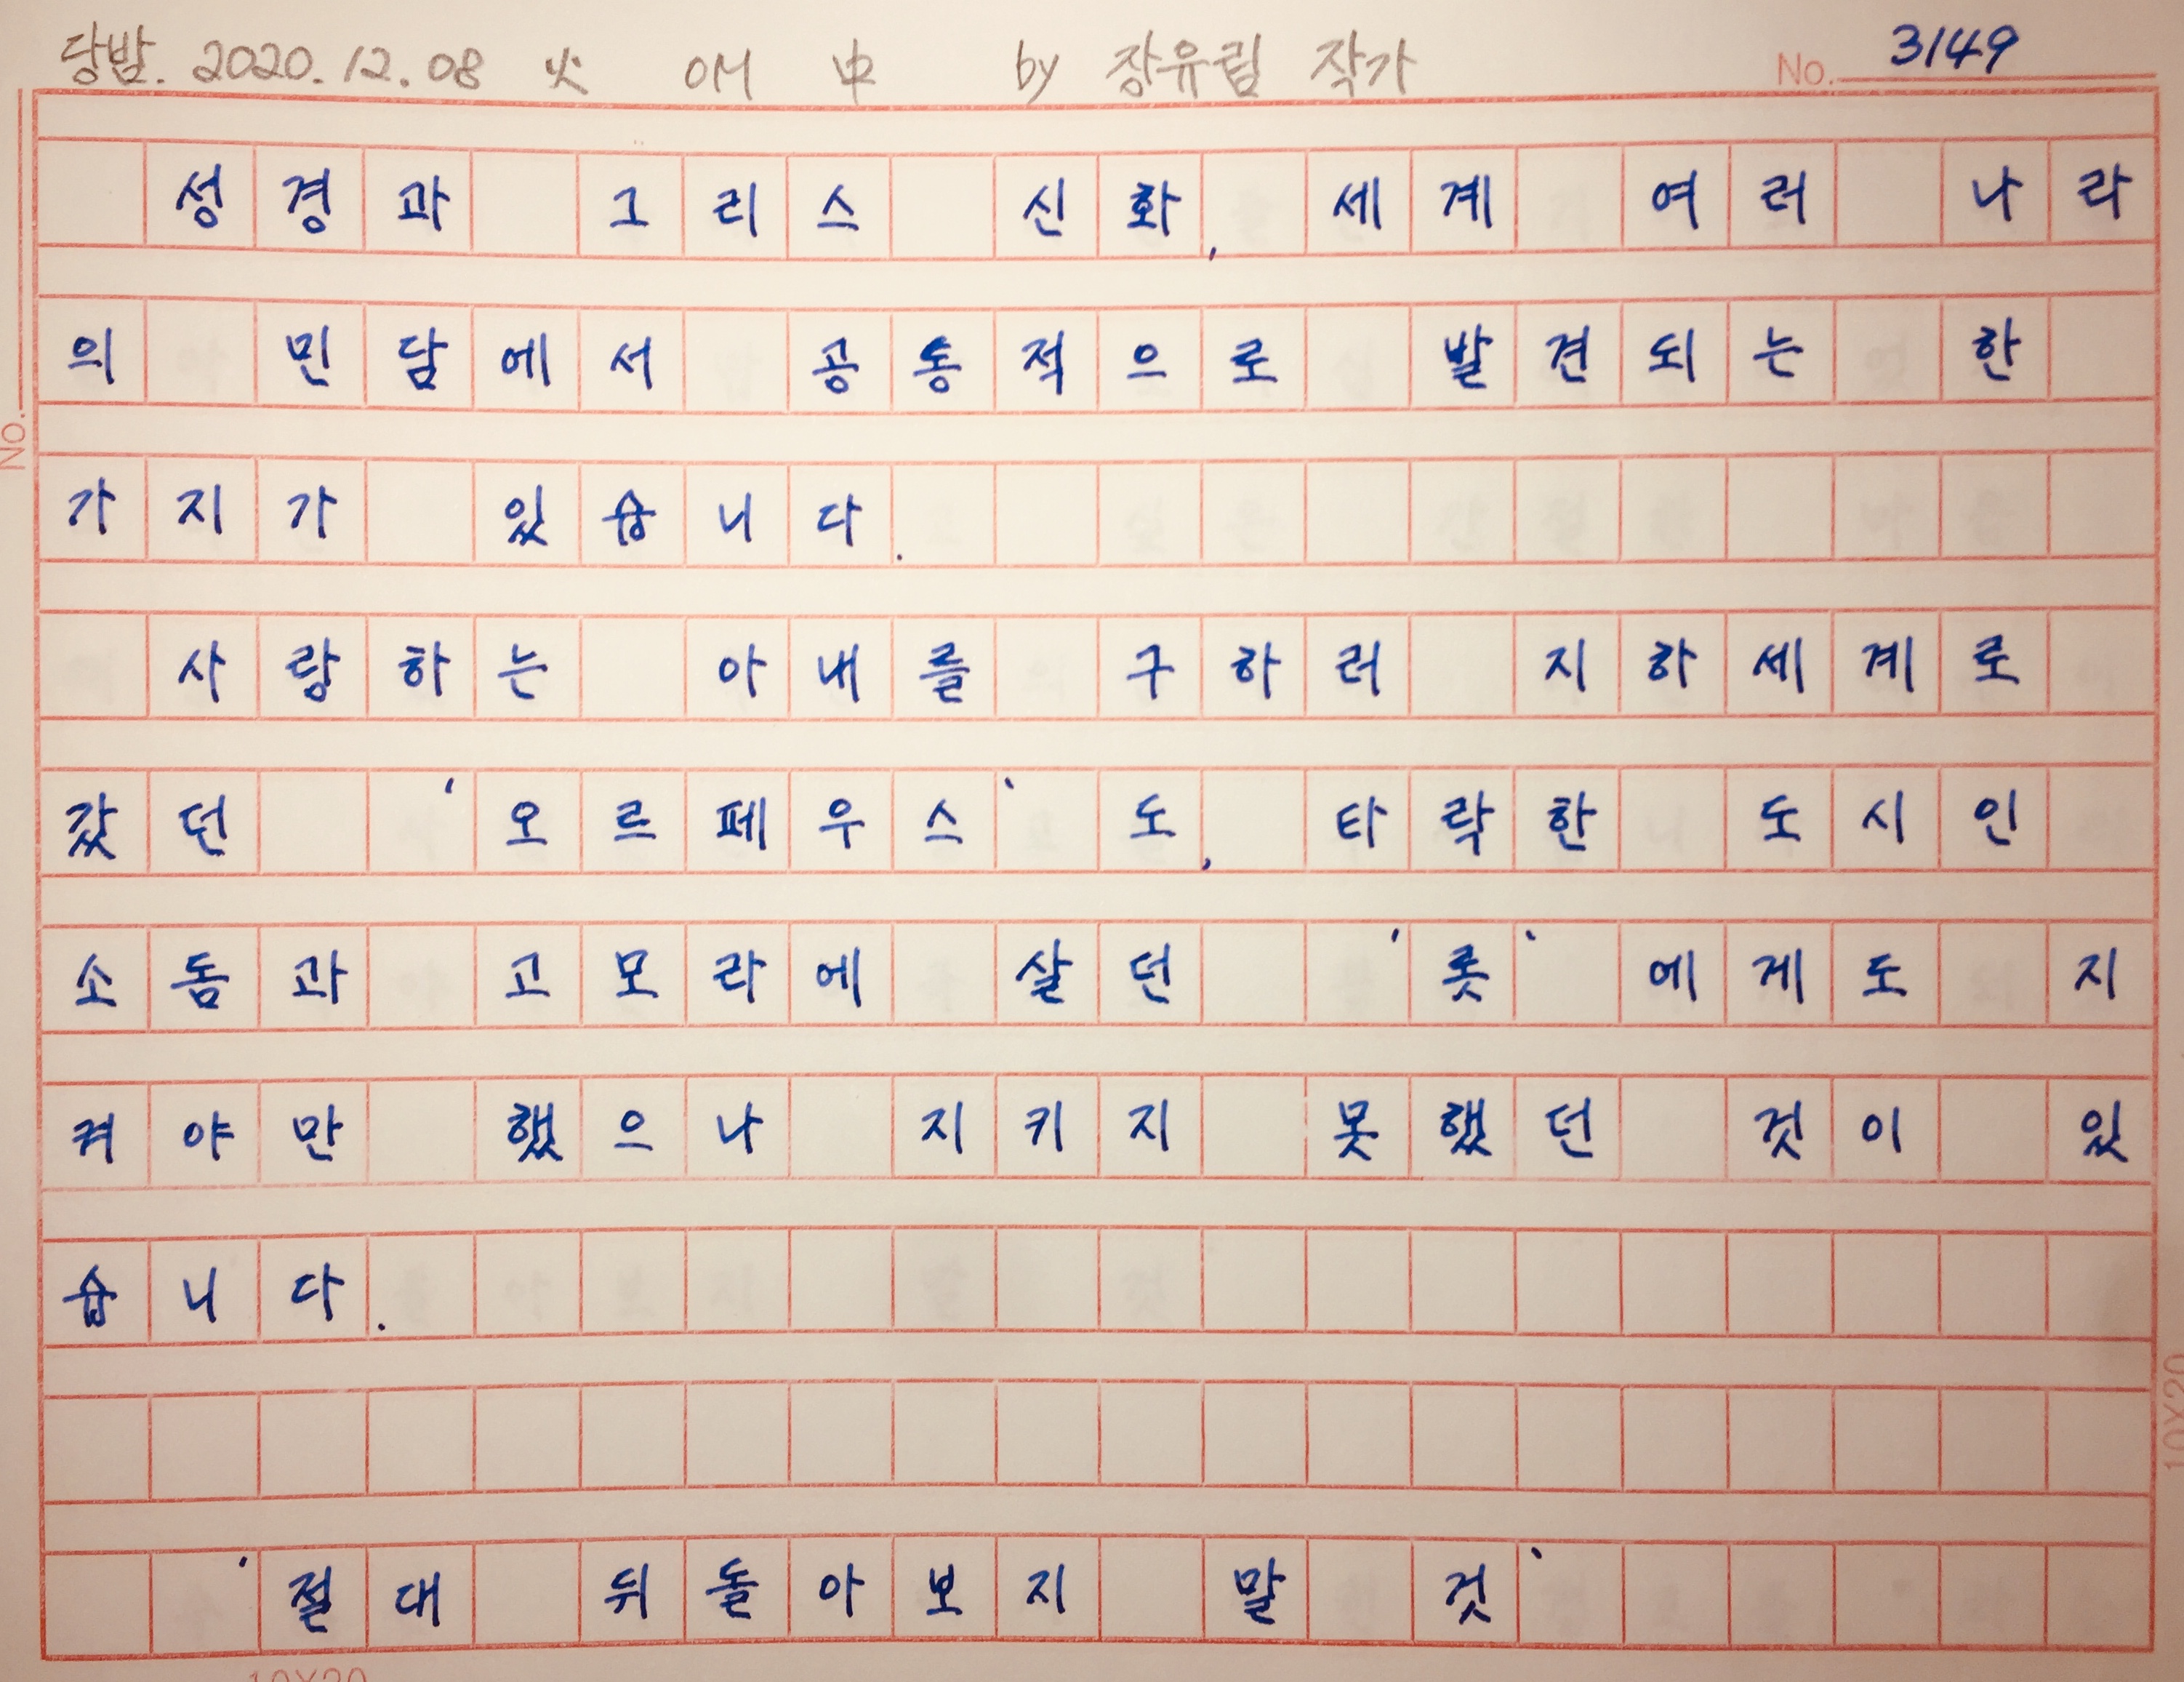 당밤. 2020.12.08 火 OH 中 by 장유림 작가 No. 3149
성경과 그리스 신화, 세계 여러 나라
의 민담에서 공동적으로 발견되는 한
가지가 있습니다.
사랑하는 아내를 구하러 지하세계로
갔던 '오르페우스'도, 타락한 도시인
소돔과 고모라에 살던 '롯'에게도 지
켜야만 했으나 지키지 못했던 것이 있
습니다.
'절대 뒤돌아보지 말 것'
No.
10X20
10X20